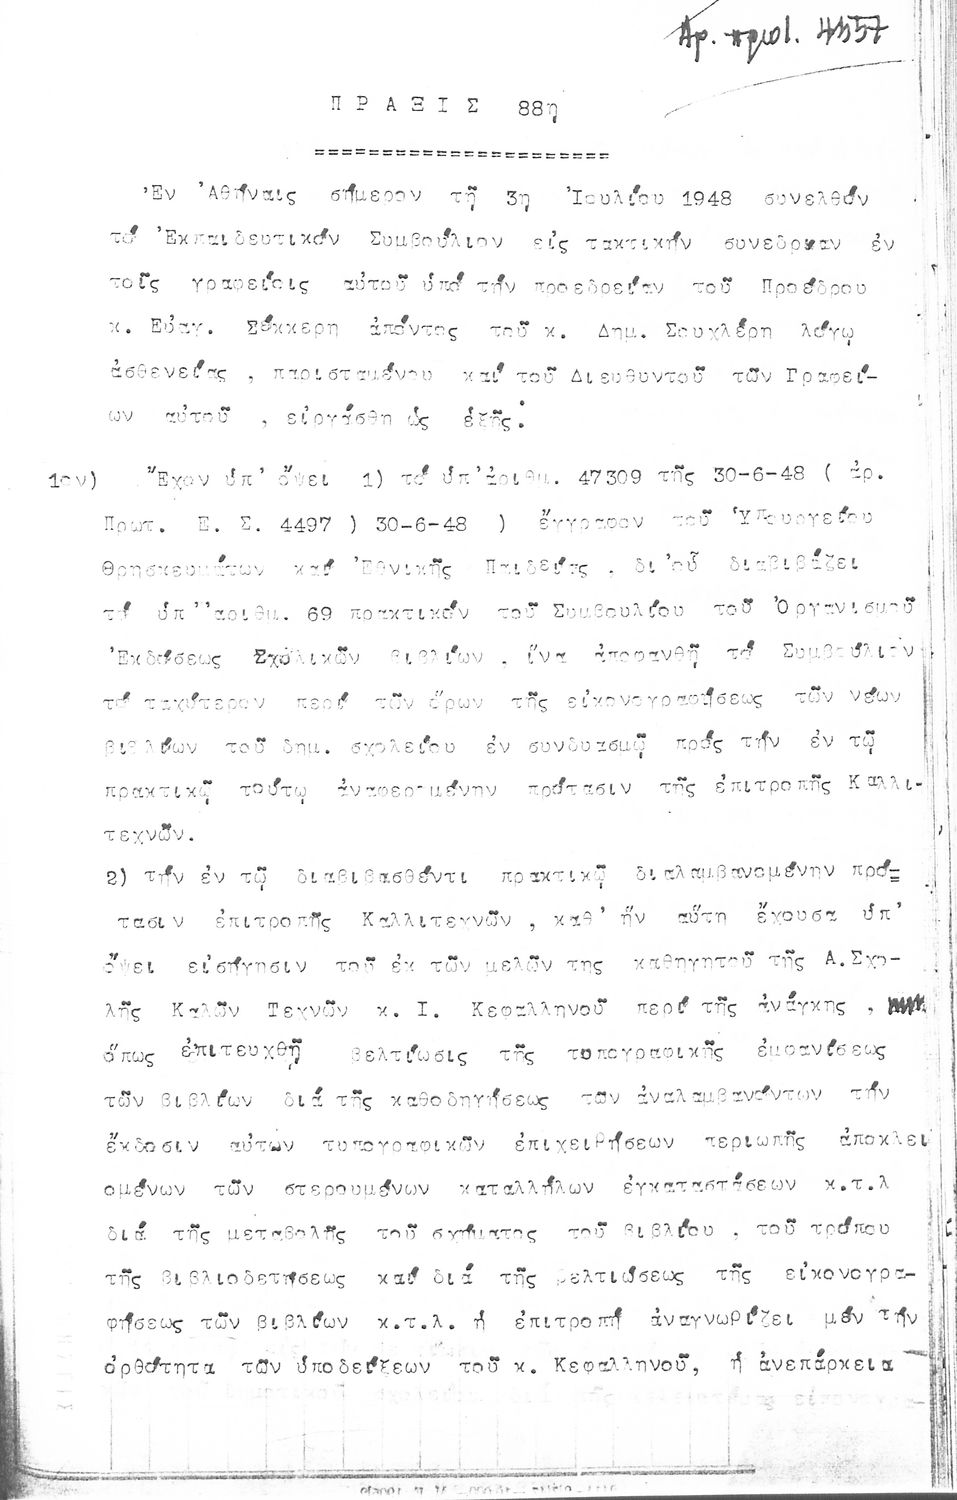 Αρ. πρωτ. 4557
Π Ρ Α Ξ Ι Σ 88η
======================
Ἐν Ἀθήναις σήμερον τῇ 3η Ἰουλίου 1948 συνελθόν
τό Ἐκπαιδευτικόν Συμβούλιον εἰς τακτικήν συνεδρίαν ἐν
τοῖς γραφείοις αὐτοῦ ὑπό τήν προεδρείαν τοῦ Προέδρου
κ. Εὐαγ. Σέκκερη ἀπόντος τοῦ κ. Δημ. Σουχλέρη λόγῳ
ἀσθενείας , παρισταμένου καί τοῦ Διευθυντοῦ τῶν Γραφεί-
ων αὐτοῦ , εἰργάσθη ὡς ἑξῆς:
1ον) Ἔχον ὑπ' ὄψει 1) τό ὑπ'ἀριθμ. 47309 τῆς 30-6-48 ( ἀρ.
Πρωτ. Ε. Σ. 4497 ) 30-6-48 ) ἔγγραφον τοῦ Ὑπουργείου
Θρησκευμάτων καί Ἐθνικῆς Παιδείας , δι'οὗ διαβιβάζει
τό ὑπ''αριθμ. 69 πρακτικόν τοῦ Συμβουλίου τοῦ Ὀργανισμοῦ
Ἐκδόσεως Σχολικῶν βιβλίων , ἵνα ἀποφανθῇ τό Συμβούλιον
τό ταχύτερον περί τῶν ὅρων τῆς εἰκονογραφήσεως τῶν νέων
βιβλίων τοῦ δημ. σχολείου ἐν συνδυασμῷ πρός τήν ἐν τῷ
πρακτικῷ τούτῳ ἀναφερομένην πρότασιν τῆς ἐπιτροπῆς Καλλι-
τεχνῶν.
2) τήν ἐν τῷ διαβιβασθέντι πρακτικῷ διαλαμβανομένην πρό=
τασιν ἐπιτροπῆς Καλλιτεχνῶν , καθ' ἥν αὕτη ἔχουσα ὑπ'
ὄψει εἰσήγησιν τοῦ ἐκ τῶν μελῶν της καθηγητοῦ τῆς Α.Σχο-
λῆς Καλῶν Τεχνῶν κ. Ι. Κεφαλληνοῦ περί τῆς ἀνάγκης ,
ὅπως ἐπιτευχθῇ βελτίωσις τῆς τυπογραφικῆς ἐμφανίσεως
τῶν βιβλίων διά τῆς καθοδηγήσεως τῶν ἀναλαμβανόντων τήν
ἔκδοσιν αὐτῶν τυπογραφικῶν ἐπιχειρήσεων περιωπῆς ἀποκλει
ομένων τῶν στερουμένων καταλλήλων ἐγκαταστάσεων κ.τ.λ
διά τῆς μεταβολῆς τοῦ σχήματος τοῦ βιβλίου , τοῦ τρόπου
τῆς βιβλιοδετήσεως καί διά τῆς βελτιώσεως τῆς εἰκονογρα-
φήσεως τῶν βιβλίων κ.τ.λ. ἡ ἐπιτροπή ἀναγνωρίζει μέν τήν
ὀρθότητα τῶν ὑποδείξεων τοῦ κ. Κεφαλληνοῦ, ἡ ἀνεπάρκεια